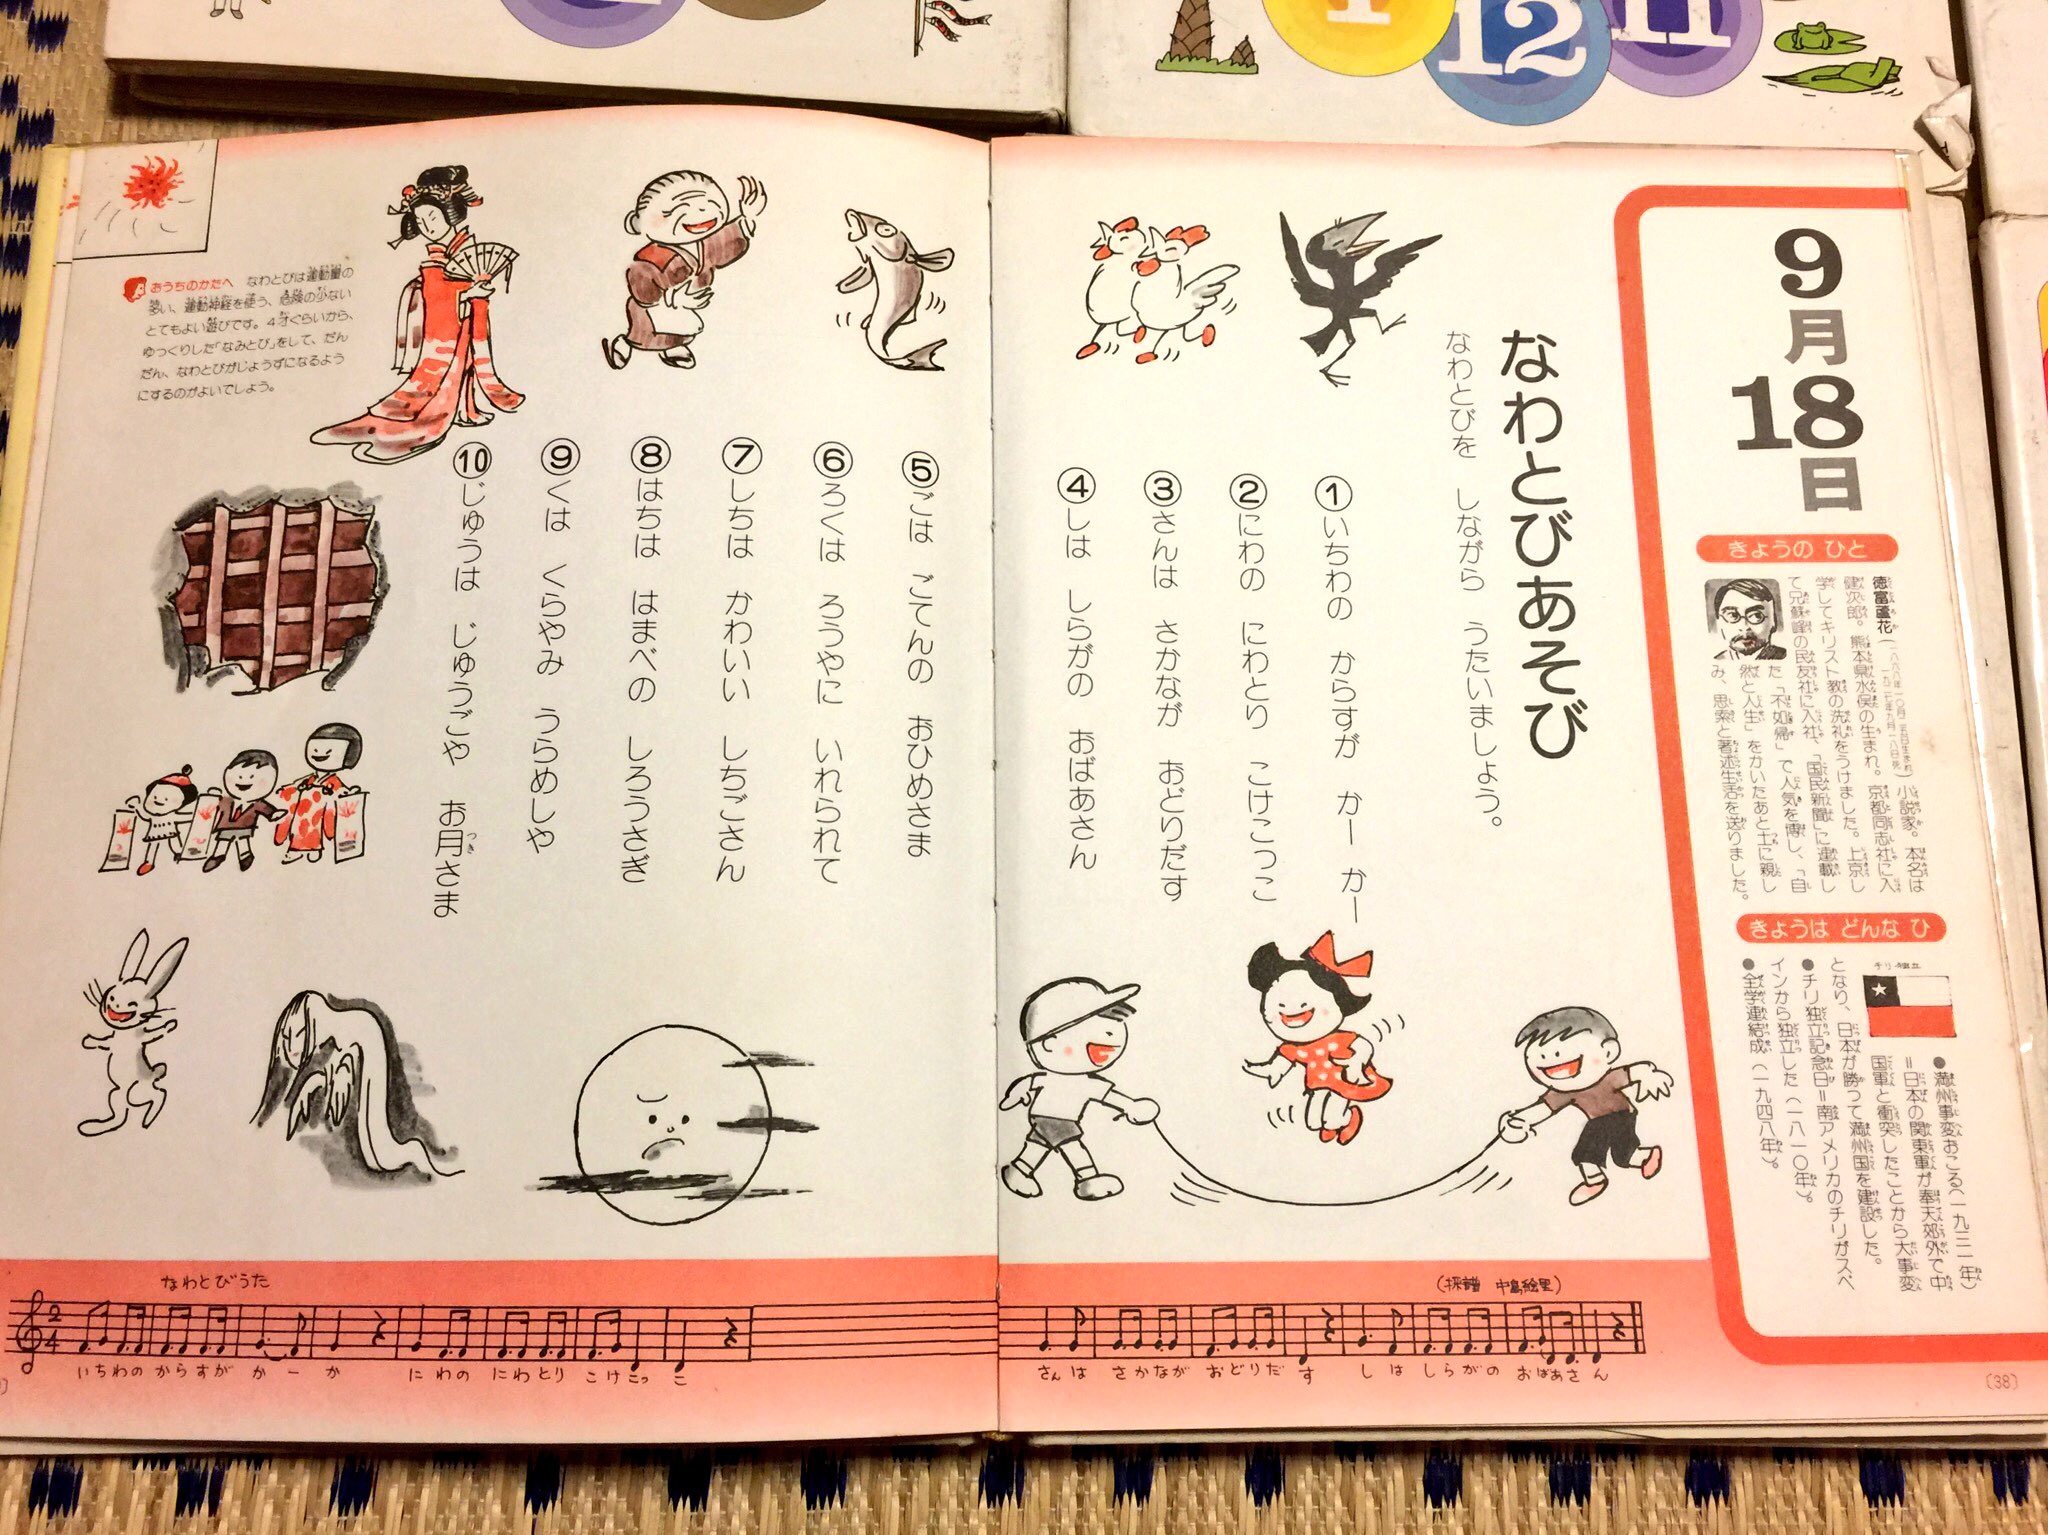 12
11
9月
18日
きょうの ひと
徳富蘆花(一八六八年一〇月二五日生まれ
一九二七年九月一八日死)小説家。本名は
健次郎。熊本県水俣の生まれ。京都同志社に入
学してキリスト教の洗礼をうけました。上京し
て兄蘇峰の民友社に入社、「国民新聞」に連載し
た「不如帰」で人気を博し、「自
然と人生」をかいたあと土に親し
み、思索と著述生活を送りました。
きょうは どんな ひ
チリ・独立
●満州事変おこる(一九三一年)
=日本の関東軍が奉天郊外で中
国軍と衝突したことから大事変
となり、日本が勝って満州国を建設した。
●チリ独立記念日=南アメリカのチリがスペ
インから独立した(一八一〇年)。
●全学連結成(一九四八年)。
なわとびあそび
なわとびを しながら うたいましょう。
①いちわの からすが かー かー
②にわの にわとり こけこっこ
③さんは さかなが おどりだす
④しは しらがの おばあさん
⑤ごは ごてんの おひめさま
⑥ろくは ろうやに いれられて
⑦しちは かわいい しちごさん
⑧はちは はまべの しろうさぎ
⑨くは くらやみ うらめしや
⑩じゅうは じゅうごや お月さま
おうちのかたへ なわとびは運動量の
多い、運動神経を使う、危険の少ない
とてもよい遊びです。4才ぐらいから、
ゆっくりした「なみとび」をして、だん
だん、なわとびがじょうずになるよう
にするのがよいでしょう。
なわとびうた
(採譜 中島絵里)
2
4
いちわの からすが かーか にわの にわとり こけこっこ
さんは さかなが おどりだす しは しらがの おばあさん
(38)